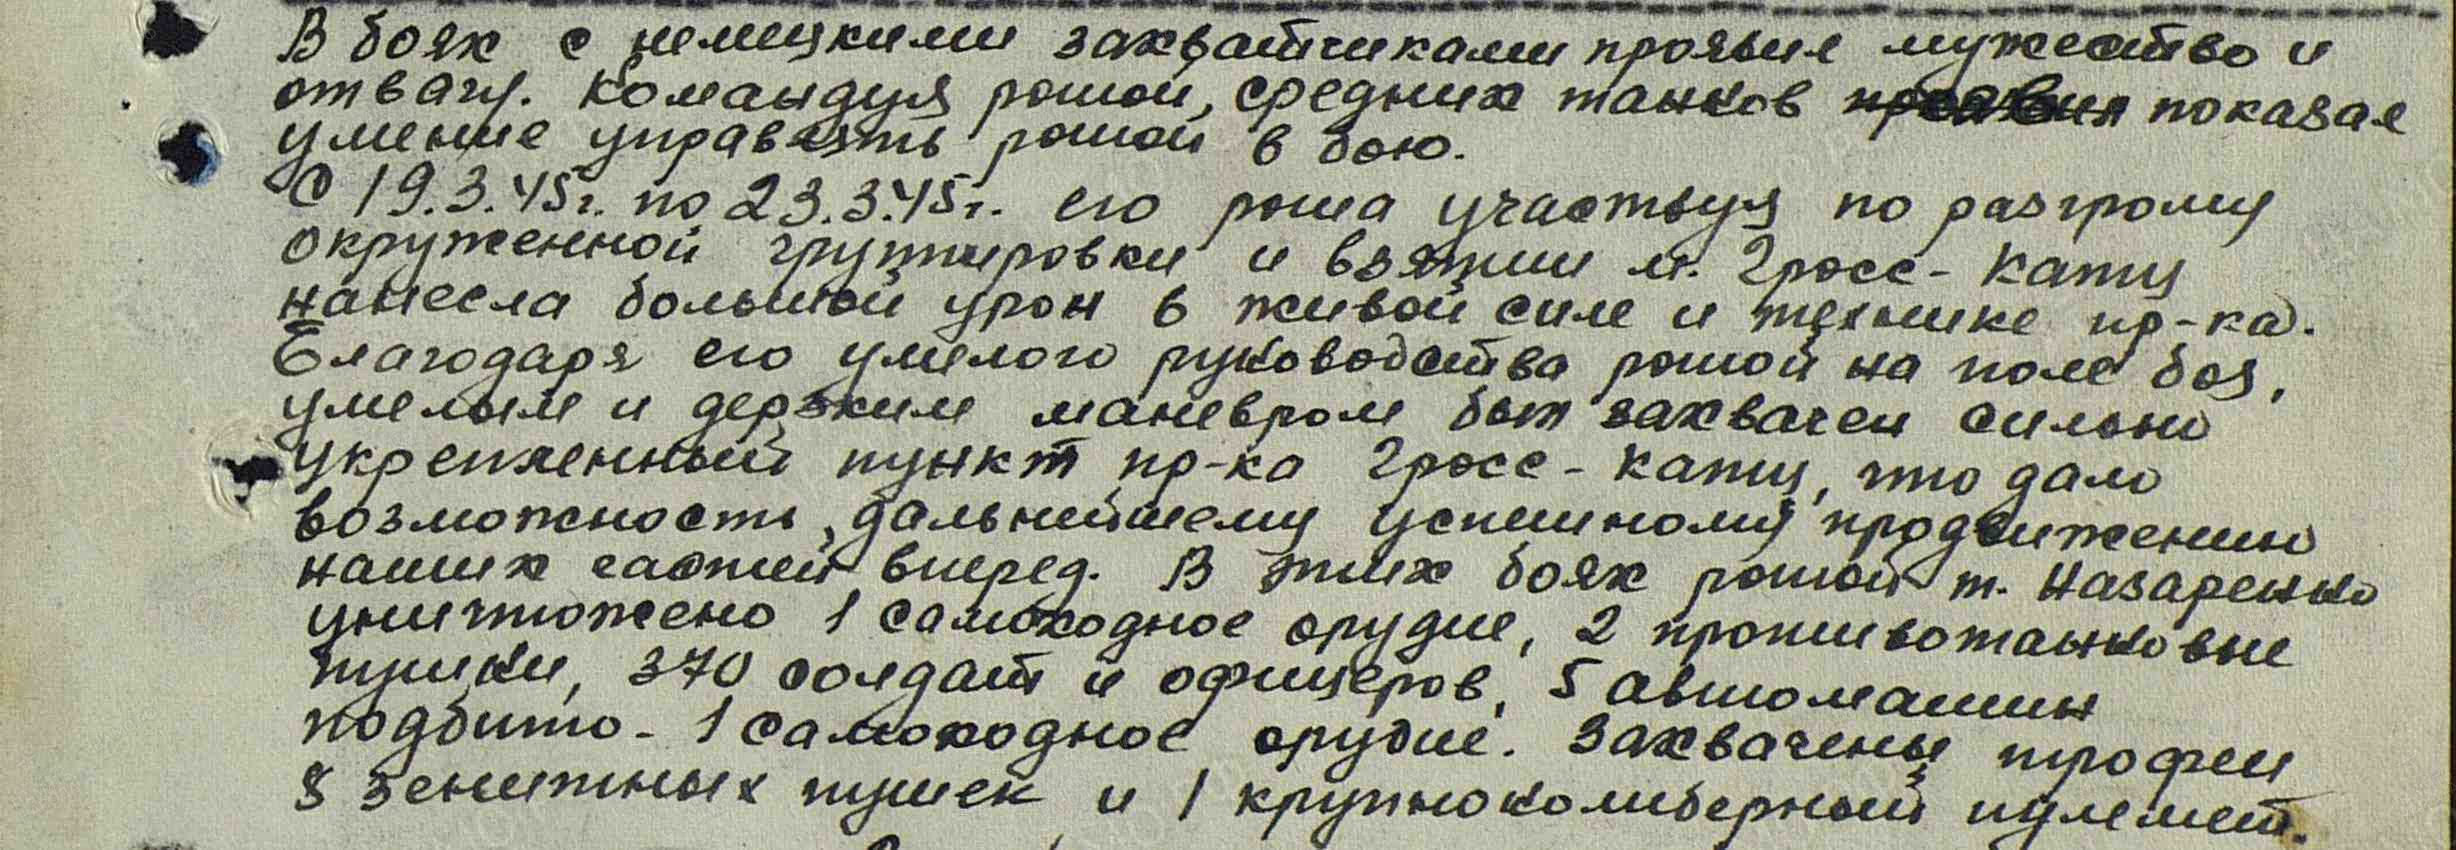 В боях с немецкими захватчиками проявил мужество и
отвагу. Командуя ротой, средних танков показал
умение управлять ротой в бою.
С 19.3.45г. по 23.3.45г. его рота участвуя по разгрому
окруженной группировки и взятии м. Гросс-Катц
нанесла большой урон в живой силе и технике пр-ка.
Благодаря его умелого руководства ротой на поле боя,
умелым и дерзким маневром был захвачен сильно
укрепленный пункт пр-ка Гросс-Катц, что дало
возможность, дальнейшему успешному продвижению
наших частей вперед. В этих боях ротой т. Назаренко
уничтожено 1 самоходное орудие, 2 противотанковые
пушки, 370 солдат и офицеров, 5 автомашин
подбито - 1 самоходное орудие. Захвачены трофеи
8 зенитных пушек и 1 крупнокалиберный пулемет.